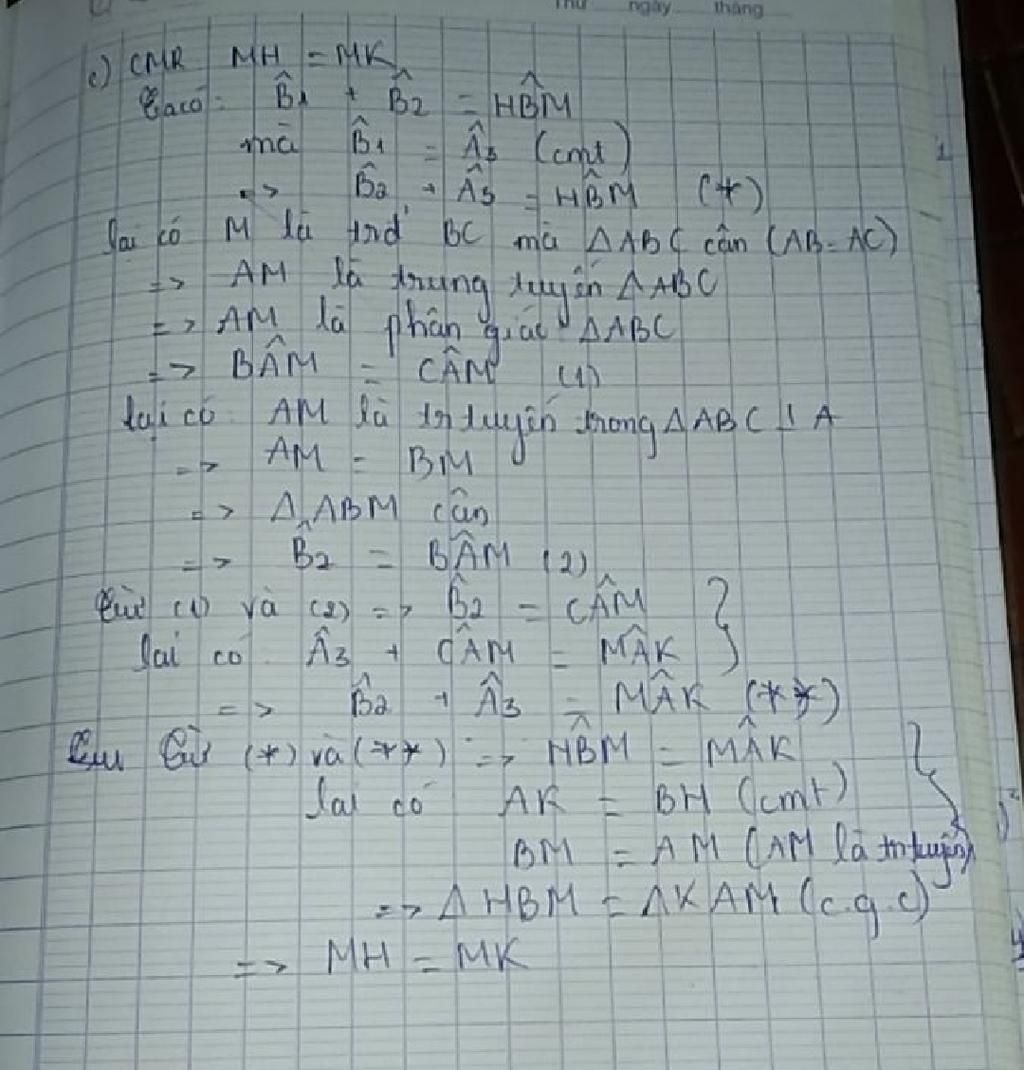 Thứ ngày tháng
c) CMR MH = MK
Ta có: B̂1 + B̂2 = HB̂M
mà B̂1 = Â3 (cmt)
=> B̂2 + Â3 = HB̂M (*)
lại có M là trđ' BC mà ΔABC cân (AB = AC)
=> AM là trung tuyến ΔABC
=> AM là phân giác ΔABC
=> BÂM = CÂM (1)
lại có AM là tr tuyến trong ΔABC ⊥ A
=> AM = BM
=> ΔABM cân
=> B̂2 = BÂM (2)
Từ (1) và (2) => B̂2 = CÂM
lại có Â3 + CÂM = MÂK
=> B̂2 + Â3 = MÂK (**)
Từ (*) và (**) => HB̂M = MÂK
lại có AK = BH (cmt)
BM = AM (AM là tr tuyến)
=> ΔHBM = ΔKAM (c.g.c)
=> MH = MK